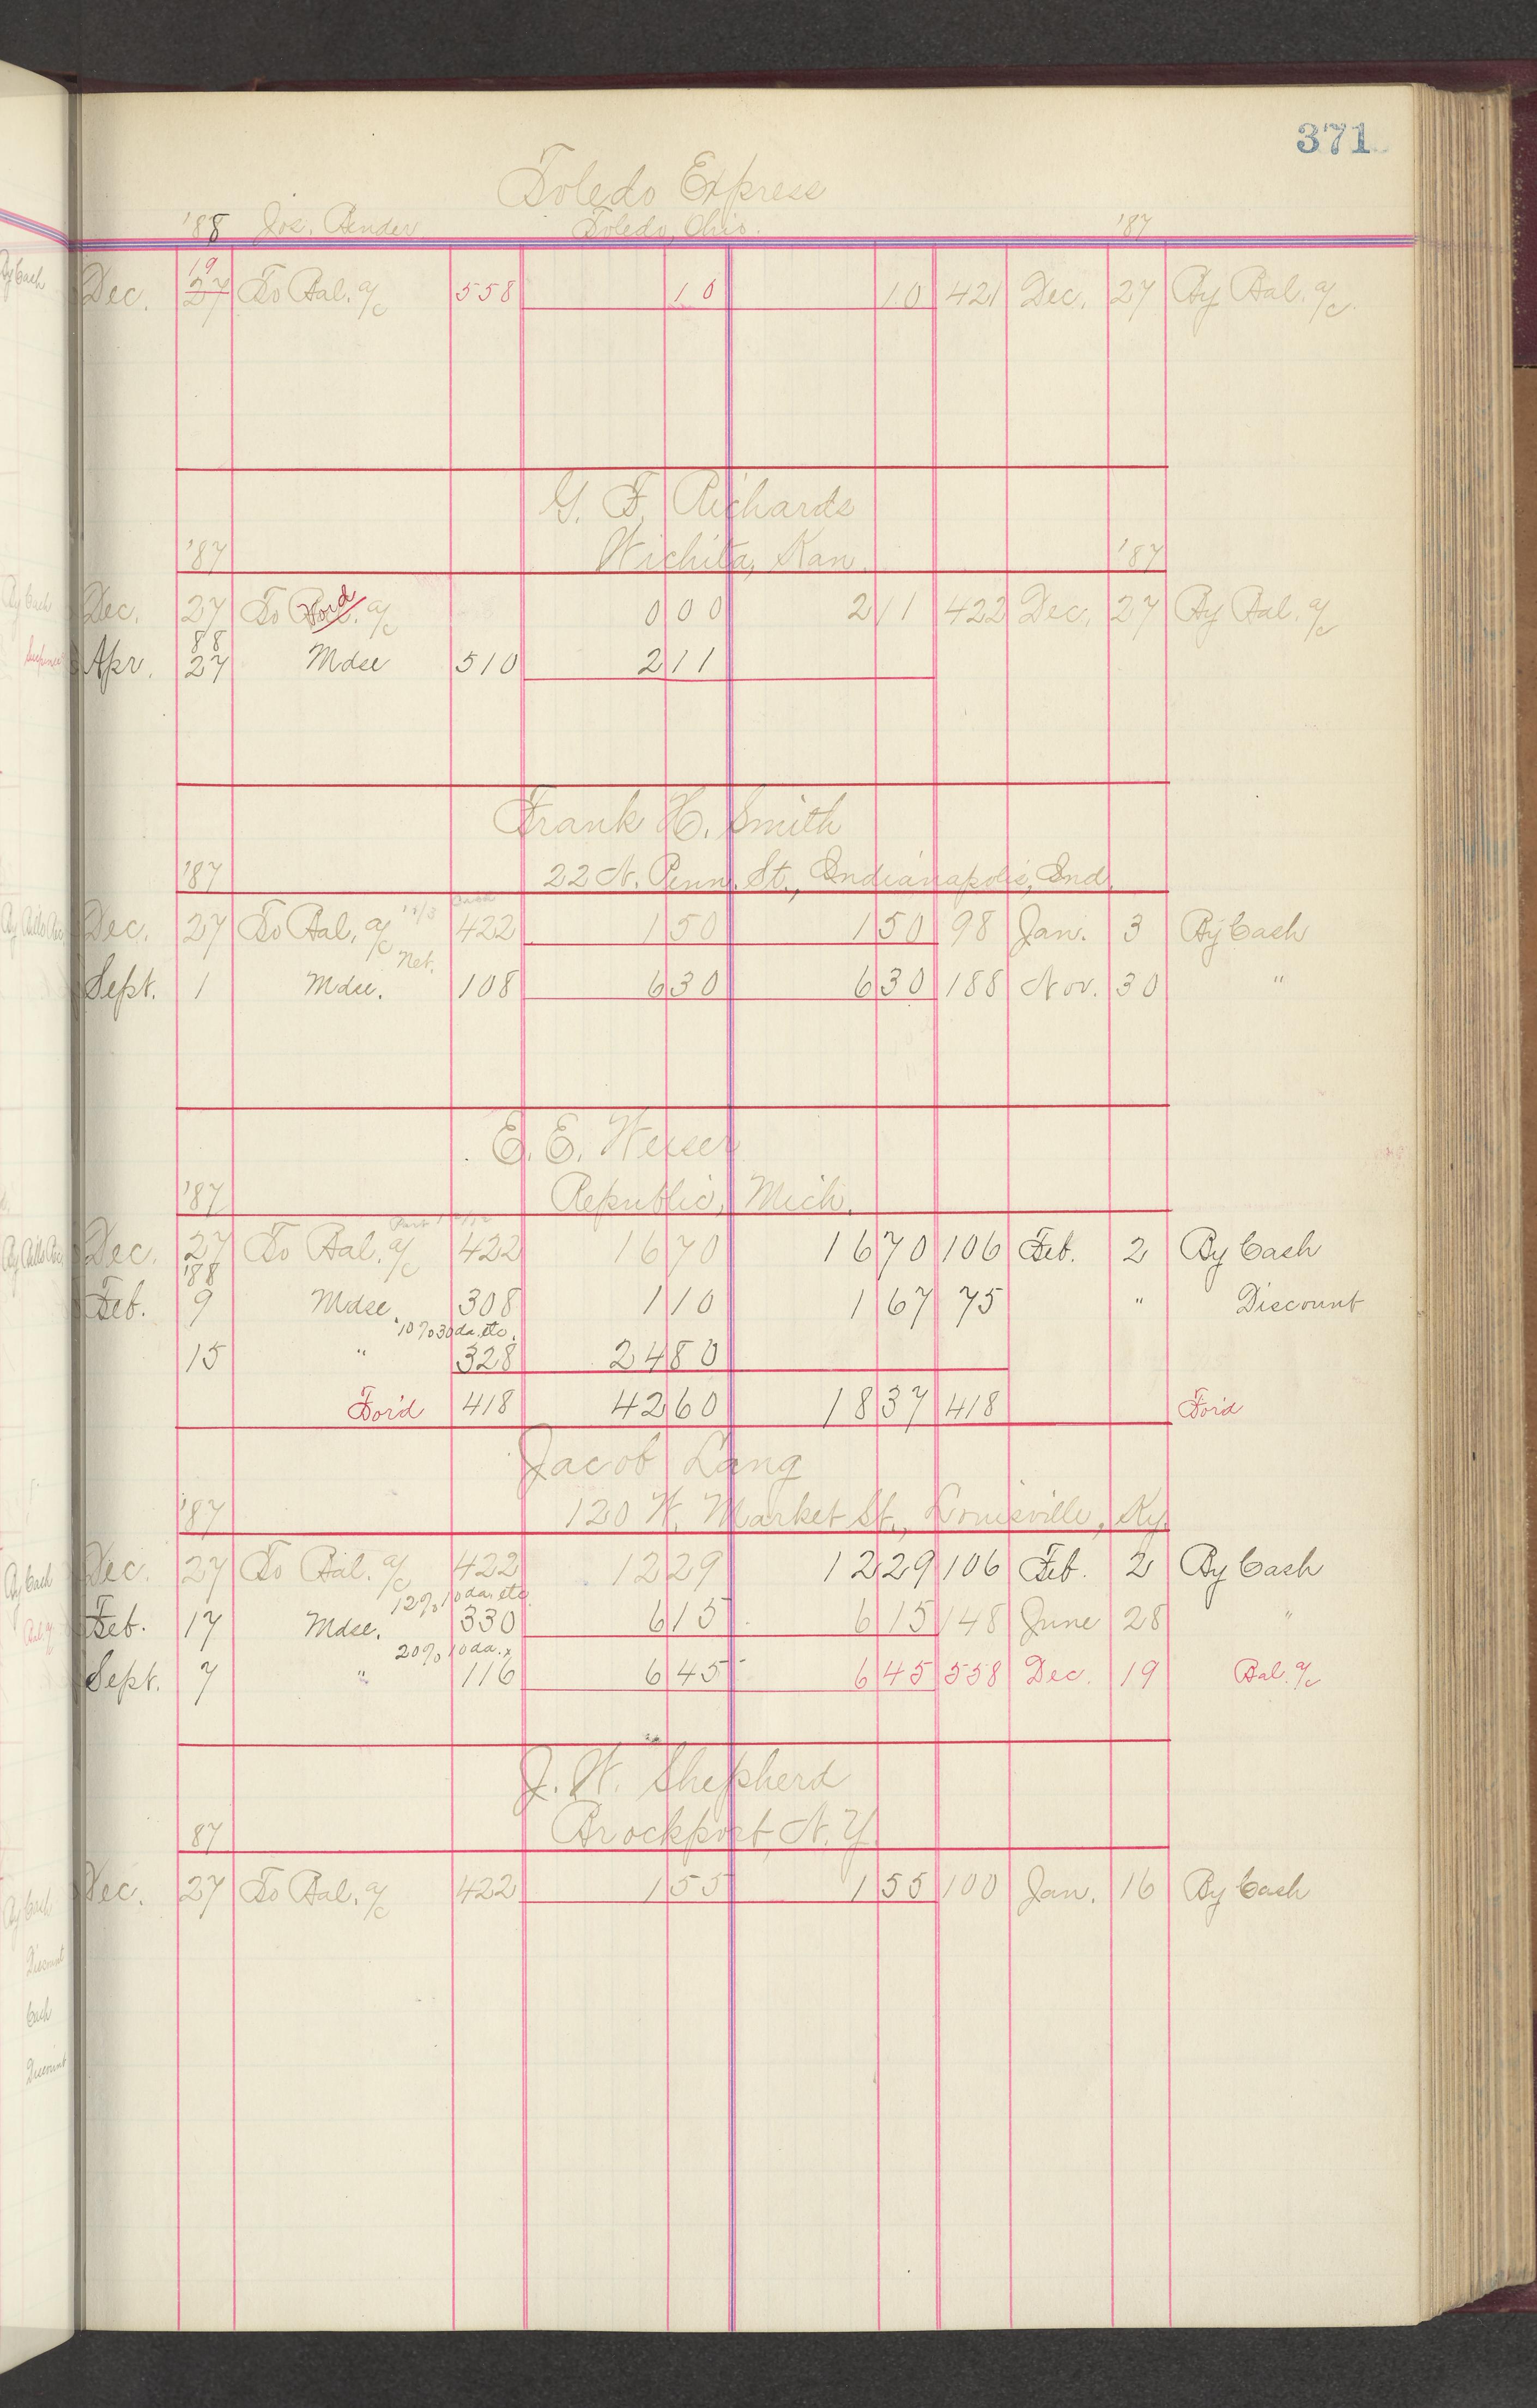 371
Toledo Express
'88 Jos. Bender Toledo, Ohio. '87
19
Dec. 27 To Bal. a/c 558 10 10 421 Dec. 27 By Bal. a/c
G. F. Richards
'87 Wichita, Kan. '87
Dec. 27 To a/c 0 00 2 11 422 Dec. 27 By Bal. a/c
88
Apr. 27 Mdse 510 2 11
Frank H. Smith
'87 22 N. Penn. St., Indianapolis, Ind.
Dec. 27 To Bal. a/c 422 1 50 1 50 98 Jan. 3 By Cash
Net.
Sept. 1 Mdse. 108 6 30 6 30 188 Nov. 30 "
E. E. Weiser
'87 Republic, Mich.
Dec. 27 To Bal. a/c 422 16 70 16 70 106 Feb. 2 By Cash
'88
Feb. 9 Mdse. 308 1 10 1 67 75 " Discount
10% 30 da. etc.
15 " 328 24 80
For'd 418 42 60 18 37 418 For'd
Jacob Lang
'87 120 W. Market St., Louisville, Ky.
Dec. 27 To Bal. a/c 422 12 29 12 29 106 Feb. 2 By Cash
12% 10 da. etc.
Feb. 17 Mdse. 330 6 15 6 15 148 June 28 "
20% 10 da. x
Sept. 7 " 116 6 45 6 45 558 Dec. 19 Bal. a/c
J. W. Shepherd
87 Brockport, N. Y.
Dec. 27 To Bal. a/c 422 1 55 1 55 100 Jan. 16 By Cash